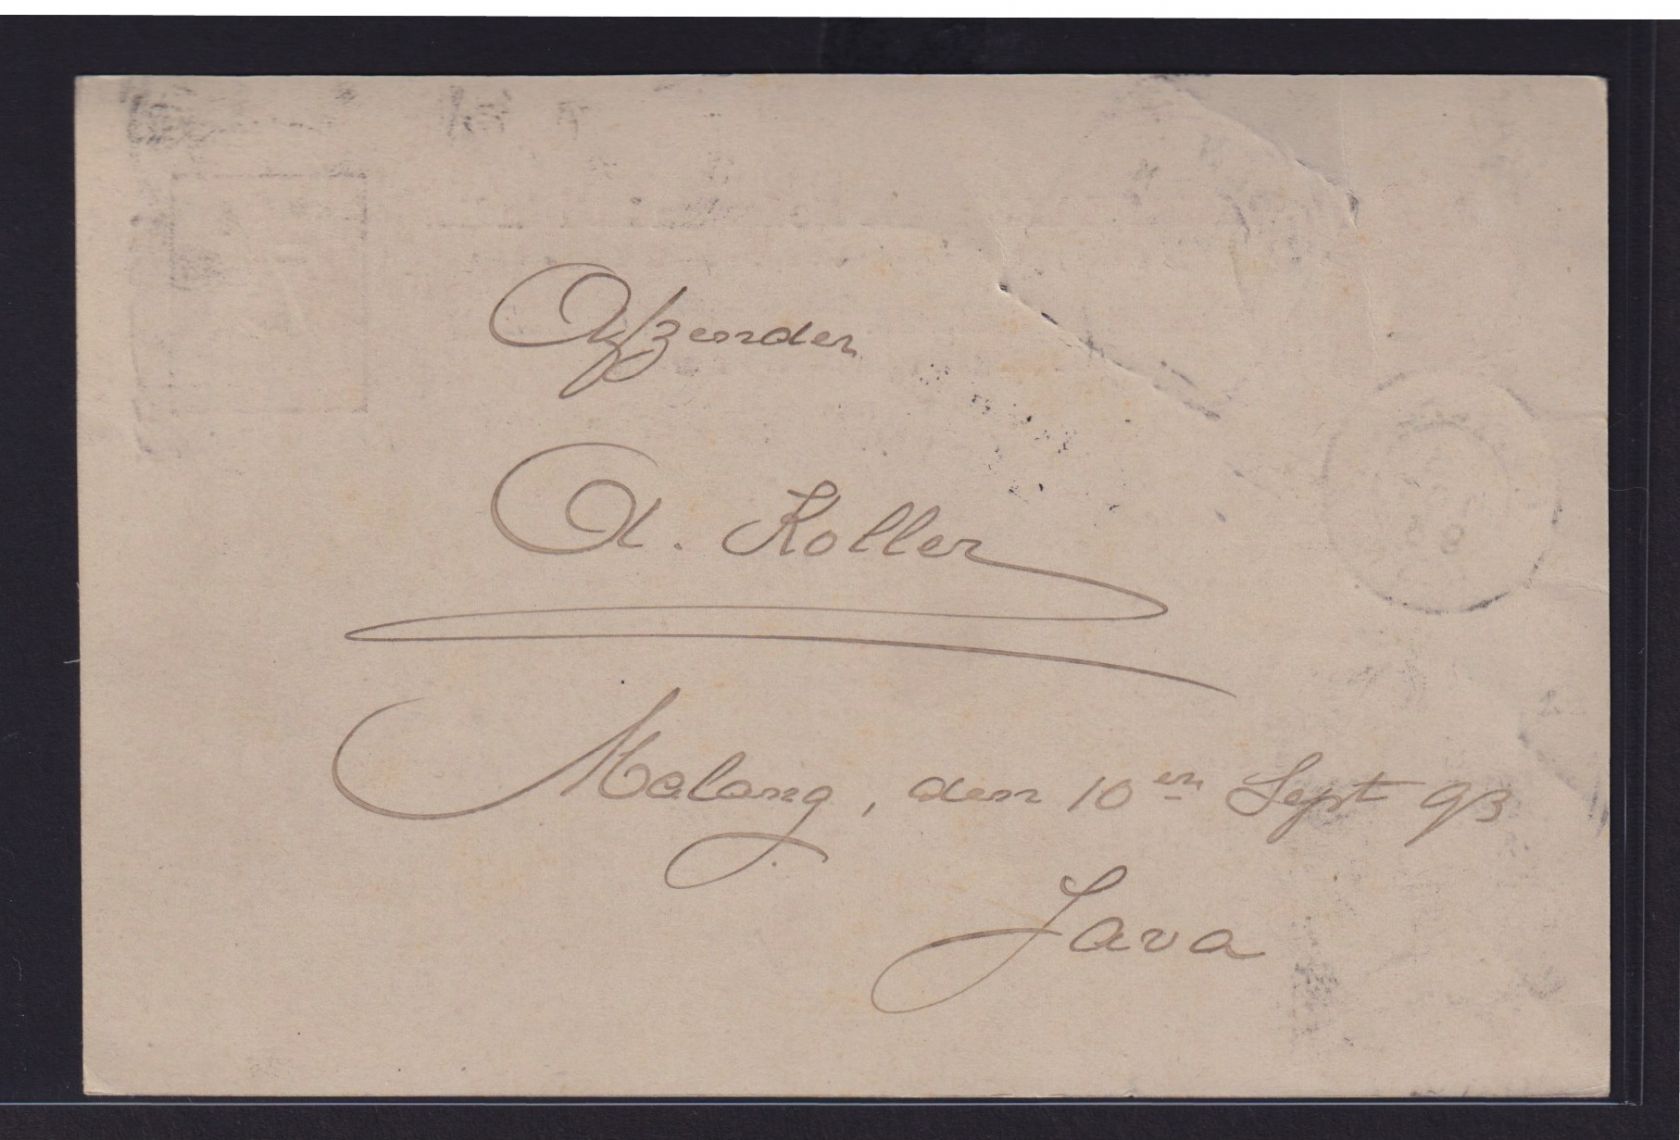 Afzender
A. Koller
Malang, den 10en Sept 93
Java